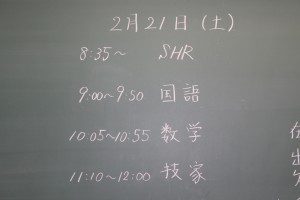 2月21日(土)
8:35～ SHR
9:00～9:50 国語
10:05～10:55 数学
11:10～12:00 技家
出